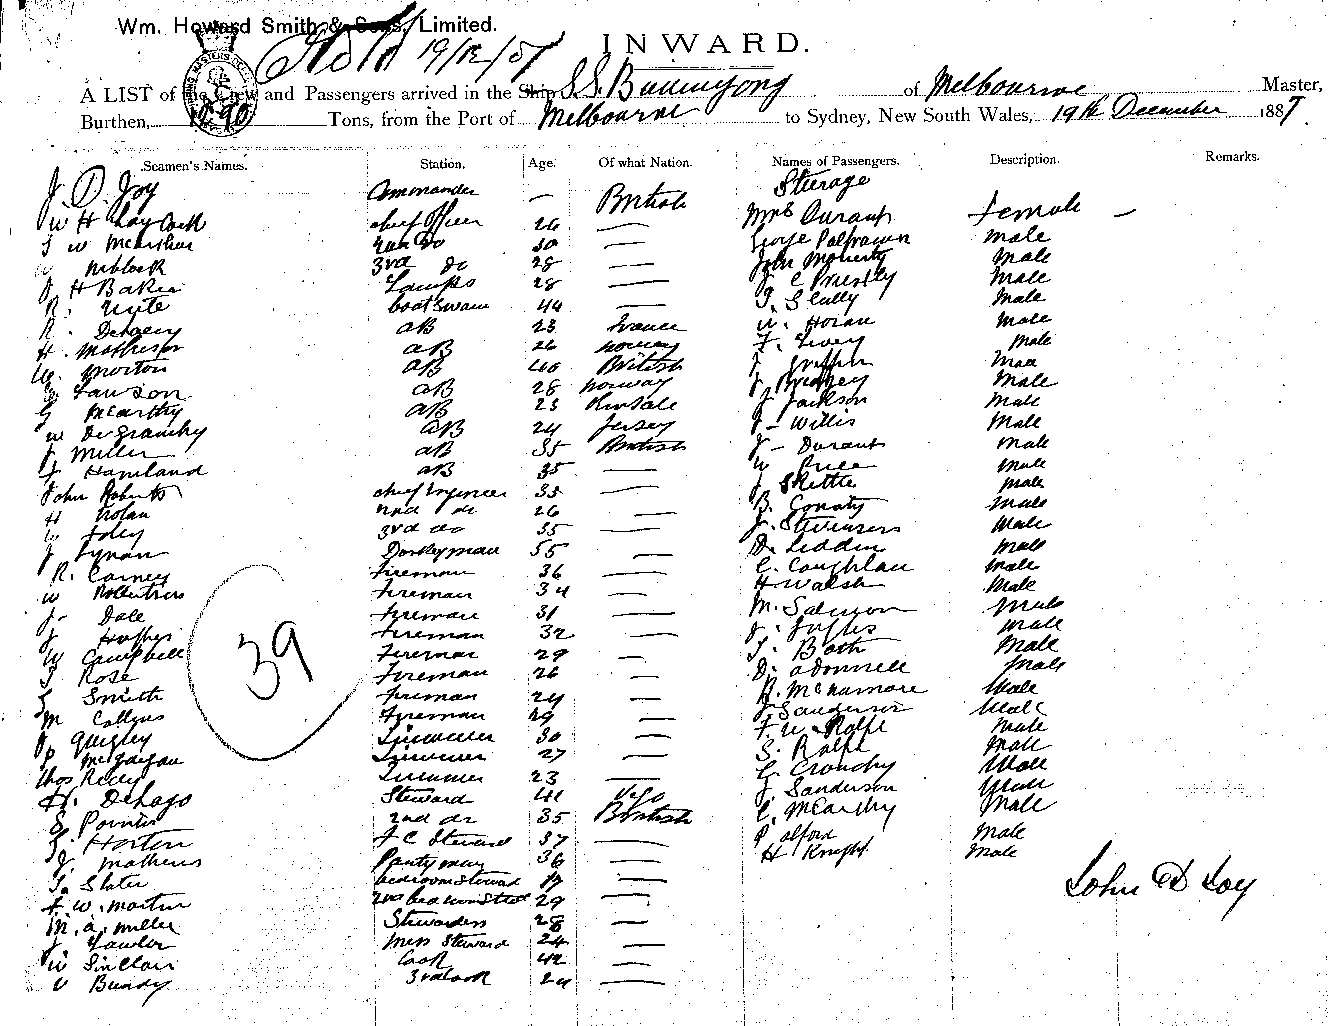 Wm. Howard Smith & Sons, Limited.
19/12/87
INWARD.
A LIST of the Crew and Passengers arrived in the Ship S.S. Buninyong of Melbourne Master,
Burthen, Tons, from the Port of Melbourne to Sydney, New South Wales, 19th December 1887.
Seamen's Names. Station. Age. Of what Nation. Names of Passengers. Description. Remarks.
Steerage
J. D. Joy Commander — British
W H Laycock chief officer 26 — Mrs Durant Female —
J W McArthur 2nd Do 30 — George Male
W McBlock 3rd do 28 — John Moriarty Male
J H Baker Lamps 28 — J C Priestly Male
R. boatswain 44 — T. Scully Male
R. AB 23 France W. Horan Male
H. Matheson AB 26 Norway F. Livey Male
W. Morton AB 40 British J Griffin Male
Lawson AB 28 Norway J Male
G McCarthy AB 23 Kinsale J Jackson Male
W De Gruchy AB 24 Jersey J - Willis Male
J Miller AB 35 British J - Durant Male
J Haviland AB 35 — W Price Male
John Roberts chief Engineer 35 — J Skittle Male
H Nolan 2nd do 26 — B. Conaty Male
W Foley 3rd do 35 — J. Male
J Lynan Donkeyman 55 — D. Leddin Male
R. Carney Fireman 36 — C. Coughlan Male
W Robertson Fireman 34 — H Walsh Male
J- Dale Fireman 31 — M. Salmon Male
J Hughes Fireman 32 — J. Male
W Campbell Fireman 29 — T. Bath Male
J Rose Fireman 26 — D. O'Donnell Male
Smith Fireman 24 — H. McNamara Male
M Collyns Fireman 29 — J Sanderson Male
P Quigley Trimmer 30 — F. W. Rolfe Male
P McGargan Trimmer 27 — S. Rolfe Male
Thos Reely Trimmer 23 — G. Crouchy Male
H. Dehago Steward 41 Vigo J. Sanderson Male
S Pointer 2nd do 35 British C. McCarthy Male
Horton F C Steward 37 — P Alford Male
J. Mathews Pantryman 36 — H Knight Male
Slater bedroom Steward 19 —
F. W. Martin 2nd bedroom Stew 29 —
M. A. Miller Stewardess 28 —
J Lawler Mess Steward 24 —
W Sinclair Cook 42 —
V Bundy 3rd Cook 24 —
39
John D Joy